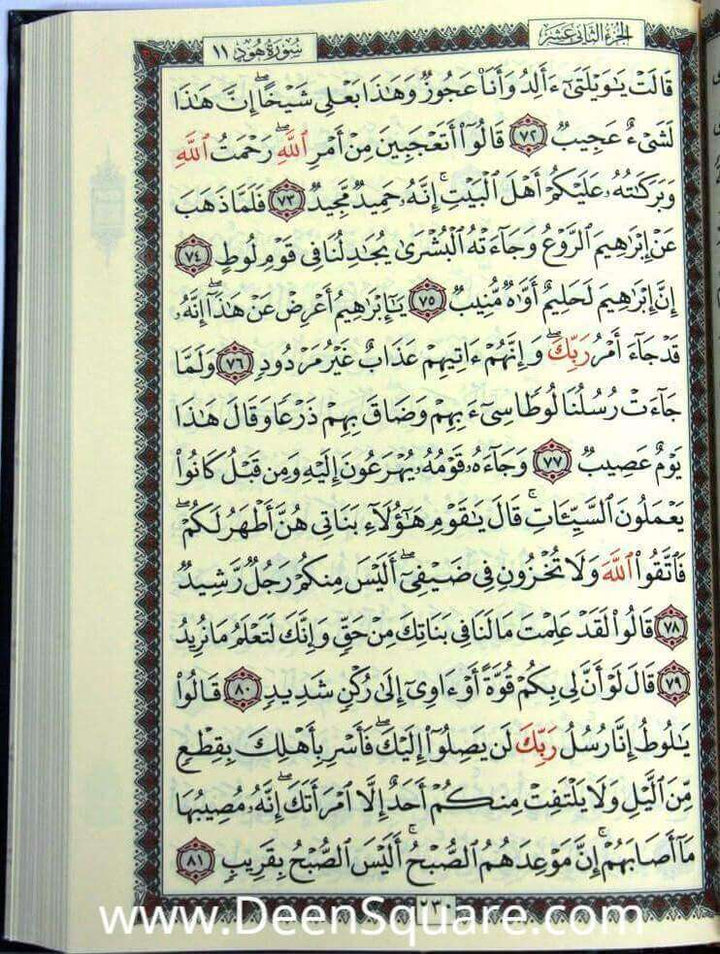 الجزء الثانى عشر
سورة هود ١١
قَالَتْ يَٰوَيْلَتَىٰٓ ءَأَلِدُ وَأَنَا۠ عَجُوزٌ وَهَٰذَا بَعْلِى شَيْخًا ۖ إِنَّ هَٰذَا
لَشَىْءٌ عَجِيبٌ ٧٢ قَالُوٓا۟ أَتَعْجَبِينَ مِنْ أَمْرِ ٱللَّهِ ۖ رَحْمَتُ ٱللَّهِ
وَبَرَكَٰتُهُۥ عَلَيْكُمْ أَهْلَ ٱلْبَيْتِ ۚ إِنَّهُۥ حَمِيدٌ مَّجِيدٌ ٧٣ فَلَمَّا ذَهَبَ
عَنْ إِبْرَٰهِيمَ ٱلرَّوْعُ وَجَآءَتْهُ ٱلْبُشْرَىٰ يُجَٰدِلُنَا فِى قَوْمِ لُوطٍ ٧٤
إِنَّ إِبْرَٰهِيمَ لَحَلِيمٌ أَوَّٰهٌ مُّنِيبٌ ٧٥ يَٰٓإِبْرَٰهِيمُ أَعْرِضْ عَنْ هَٰذَآ ۖ إِنَّهُۥ
قَدْ جَآءَ أَمْرُ رَبِّكَ ۖ وَإِنَّهُمْ ءَاتِيهِمْ عَذَابٌ غَيْرُ مَرْدُودٍ ٧٦ وَلَمَّا
جَآءَتْ رُسُلُنَا لُوطًا سِىٓءَ بِهِمْ وَضَاقَ بِهِمْ ذَرْعًا وَقَالَ هَٰذَا
يَوْمٌ عَصِيبٌ ٧٧ وَجَآءَهُۥ قَوْمُهُۥ يُهْرَعُونَ إِلَيْهِ وَمِن قَبْلُ كَانُوا۟
يَعْمَلُونَ ٱلسَّيِّـَٔاتِ ۚ قَالَ يَٰقَوْمِ هَٰٓؤُلَآءِ بَنَاتِى هُنَّ أَطْهَرُ لَكُمْ ۖ
فَٱتَّقُوا۟ ٱللَّهَ وَلَا تُخْزُونِ فِى ضَيْفِىٓ ۖ أَلَيْسَ مِنكُمْ رَجُلٌ رَّشِيدٌ
٧٨ قَالُوا۟ لَقَدْ عَلِمْتَ مَا لَنَا فِى بَنَاتِكَ مِنْ حَقٍّ وَإِنَّكَ لَتَعْلَمُ مَا نُرِيدُ
٧٩ قَالَ لَوْ أَنَّ لِى بِكُمْ قُوَّةً أَوْ ءَاوِىٓ إِلَىٰ رُكْنٍ شَدِيدٍ ٨٠ قَالُوا۟
يَٰلُوطُ إِنَّا رُسُلُ رَبِّكَ لَن يَصِلُوٓا۟ إِلَيْكَ ۖ فَأَسْرِ بِأَهْلِكَ بِقِطْعٍ
مِّنَ ٱلَّيْلِ وَلَا يَلْتَفِتْ مِنكُمْ أَحَدٌ إِلَّا ٱمْرَأَتَكَ ۖ إِنَّهُۥ مُصِيبُهَا
مَآ أَصَابَهُمْ ۚ إِنَّ مَوْعِدَهُمُ ٱلصُّبْحُ ۚ أَلَيْسَ ٱلصُّبْحُ بِقَرِيبٍ ٨١
٢٣٠
www.DeenSquare.com